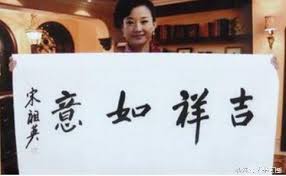 吉祥如意
宋祖英